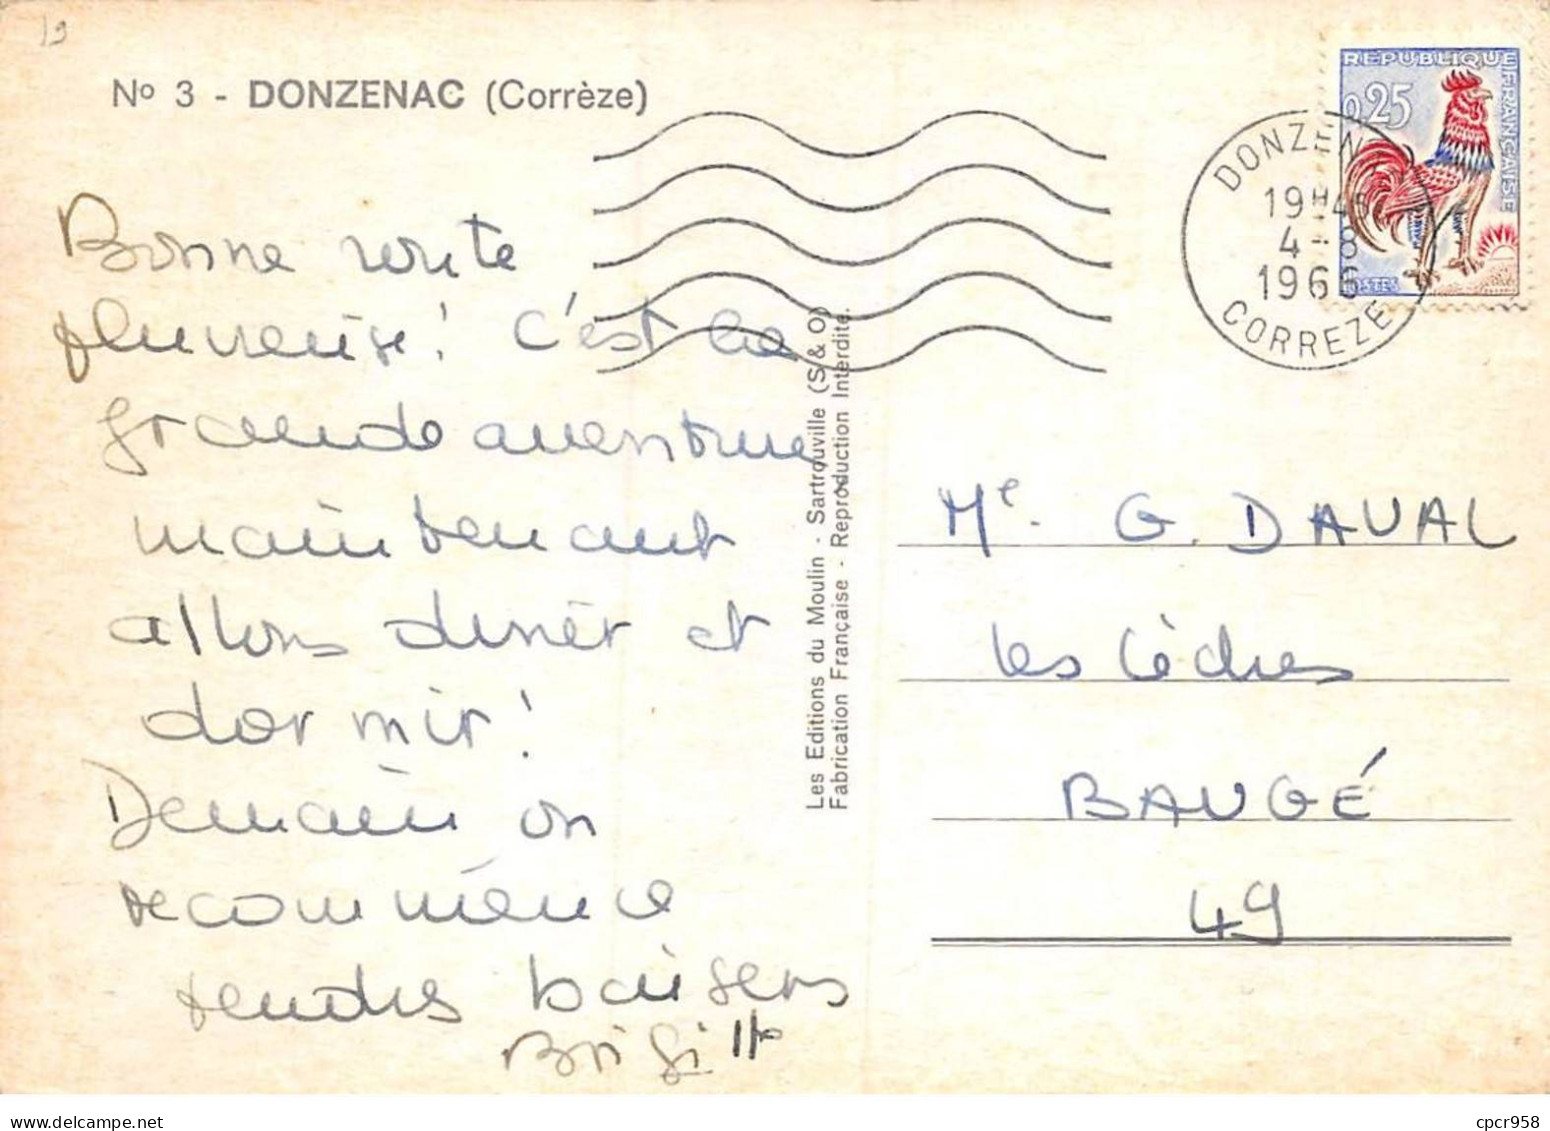 19
No 3 - DONZENAC (Corrèze)
RÉPUBLIQUE FRANÇAISE
0,25
POSTES
DONZEN
19H4
4-8
1966
CORREZE
Bonne route
pluvieuse! C'est la
grande aventure
maintenant
allons diner et
dormir!
Demain on
recommence
tendres baisers
Brigitte
Les Editions du Moulin - Sartrouville (S & O)
Fabrication Française - Reproduction Interdite.
Me. G. DAVAL
les Cèdres
BAUGÉ
49
cpcr958